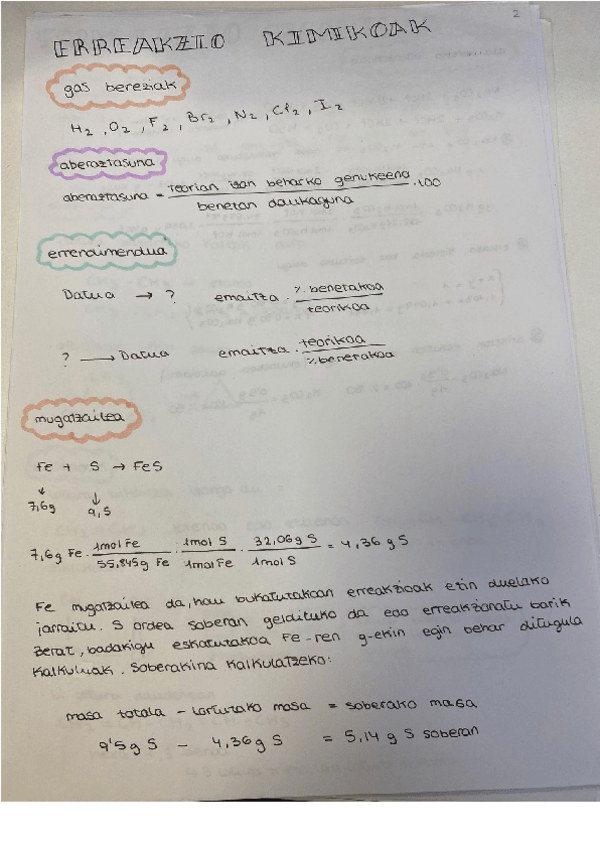 2
ERREAKZIO KIMIKOAK
gas bereziak
H₂, O₂, F₂, Br₂, N₂, Cl₂, I₂
aberastasuna
aberastasuna = Teorian izan beharko genukeena / benetan daukaguna · 100
errendimendua
Datua → ? emaitza · % benetakoa / teorikoa
? → Datua emaitza · teorikoa / % benetakoa
mugatzailea
Fe + S → FeS
7,6g 9,5
7,6g Fe · 1mol Fe / 55,845g Fe · 1mol S / 1mol Fe · 32,06g S / 1mol S = 4,36 g S
Fe mugatzailea da, hau bukatutakoan erreakzioak etin duelako
jarraitu. S ordea soberan geldituko da edo erreakzionatu barik
Beraz, badakigu eskatutakoa Fe-ren g-ekin egin behar ditugula
kalkuluak. Soberakina kalkulatzeko:
masa totala - lortutako masa = soberako masa
9'5g S - 4,36g S = 5,14 g S soberan